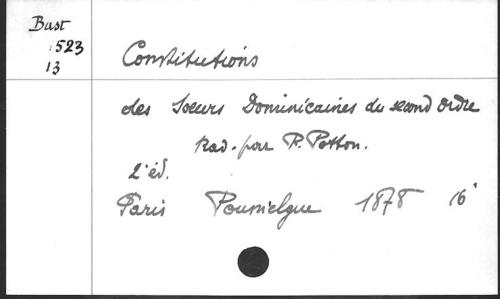 Bast
523
13
Constitutions
des Soeurs Dominicaines du second ordre
trad. par P. Potton.
2e éd.
Paris Poussielgue 1878 16°